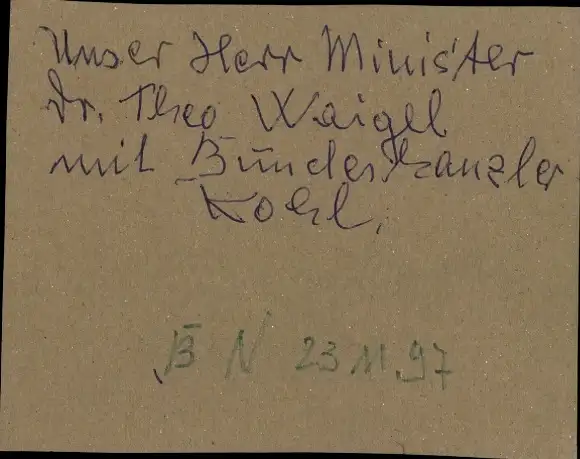 Unser Herr Minister
Dr. Theo Waigel
mit Bundeskanzler
Kohl.
B N 23 11.97